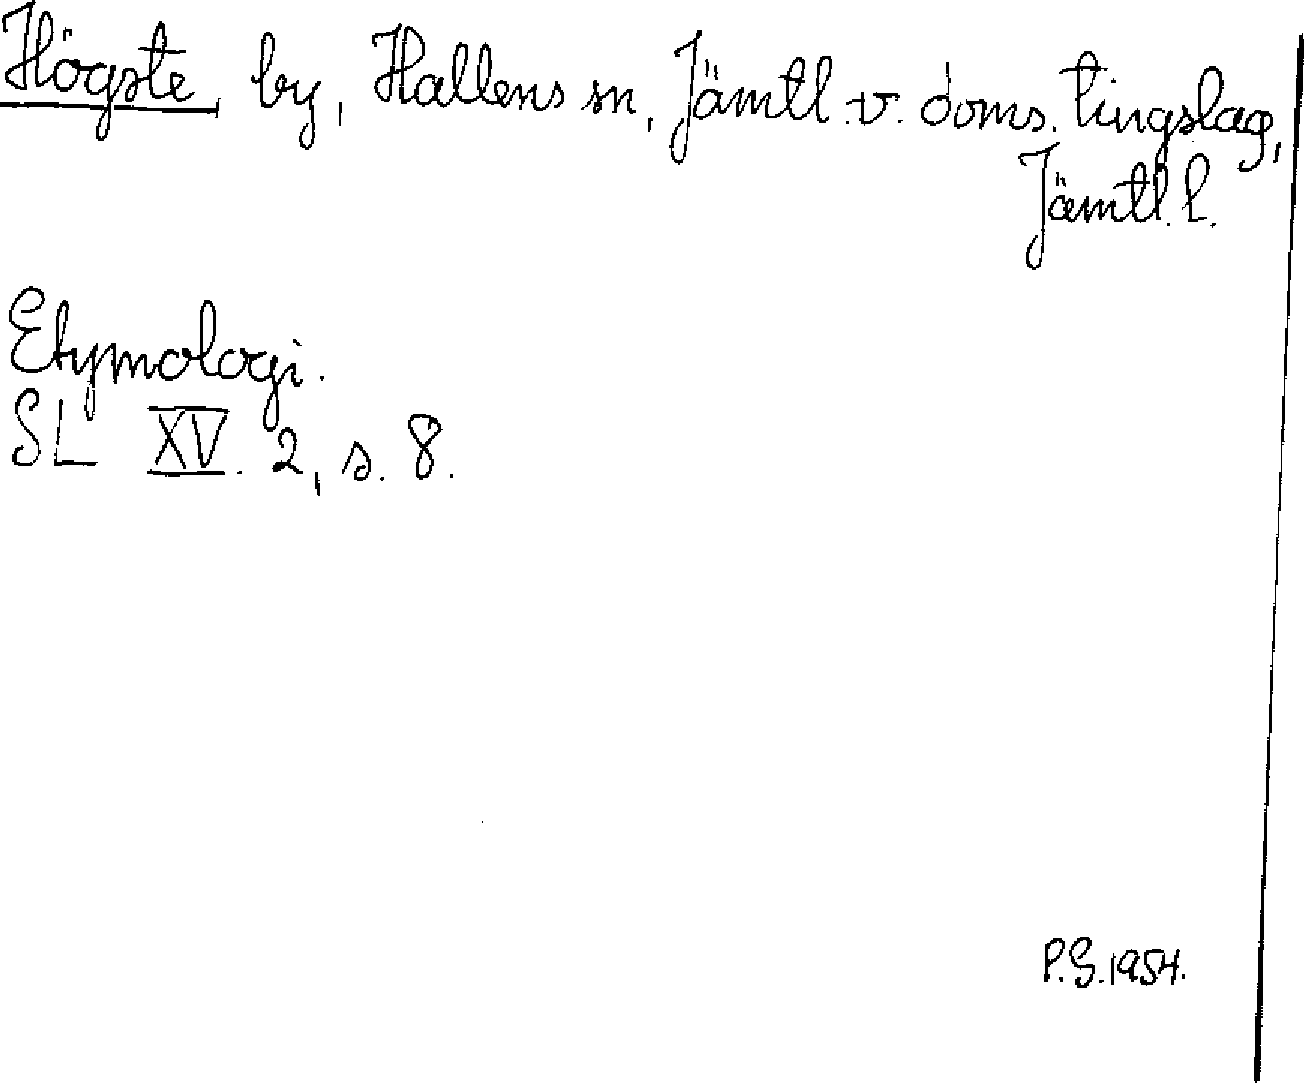 Högste, by, Hallens sn, Jämtl. v. doms. tingslag,
Jämtl. l.
Etymologi.
SL XV. 2, s. 8.
P.S. 1954.